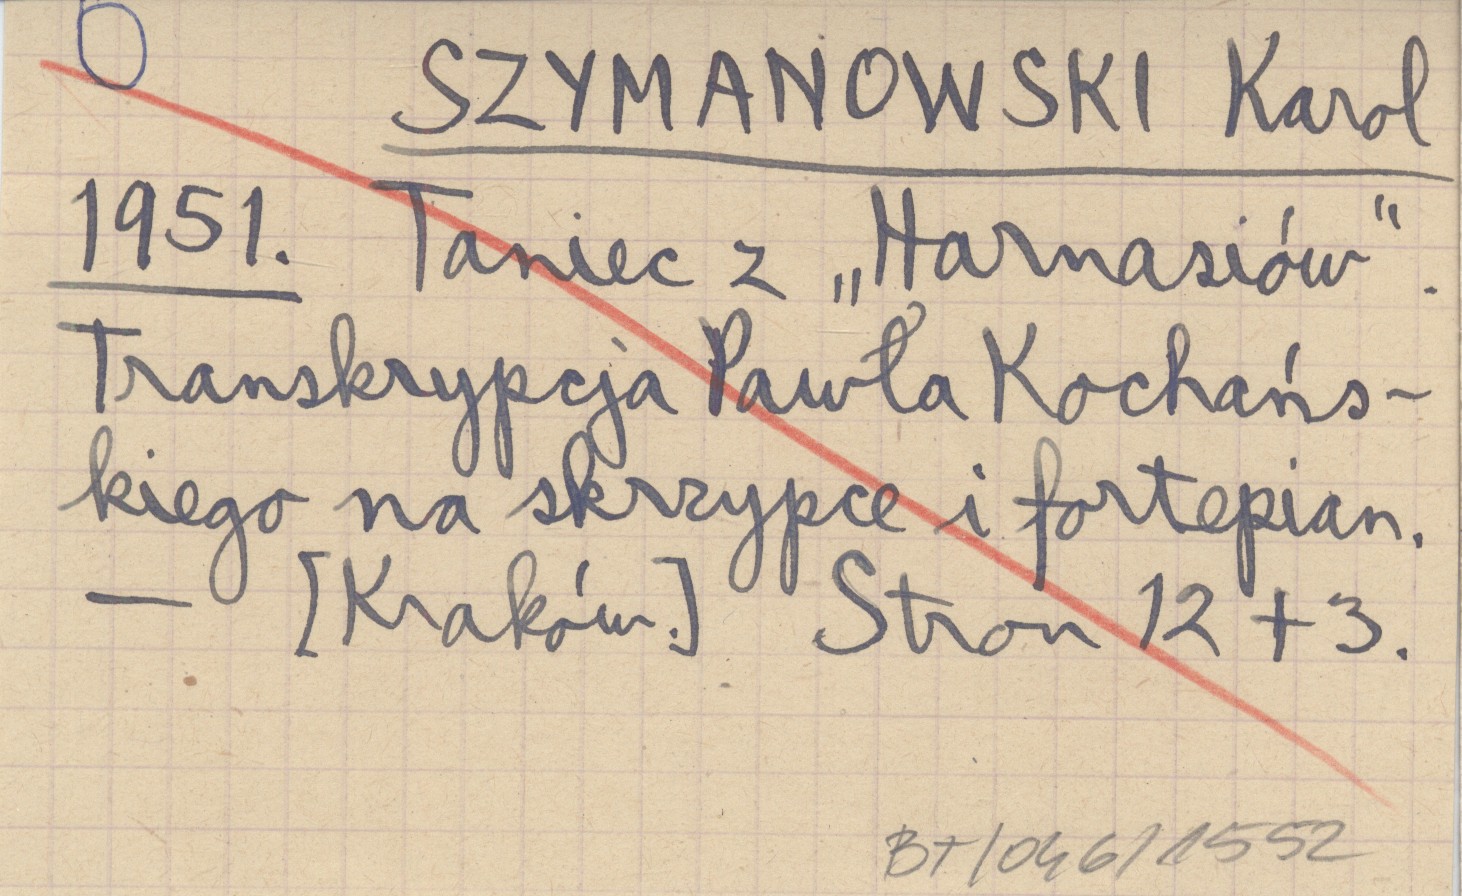 6
SZYMANOWSKI Karol
1951. Taniec z „Harnasiów".
Transkrypcja Pawła Kochańs-
kiego na skrzypce i fortepian.
— [Kraków.] Stron 12 + 3.
BT/046/1552